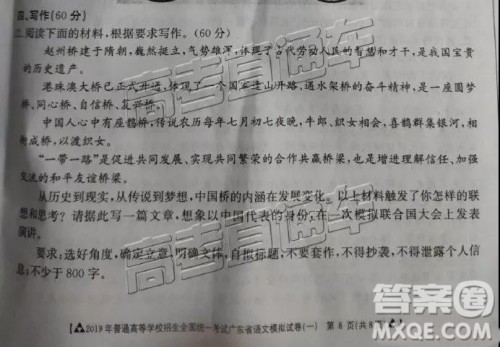 四、写作(60分)
二、阅读下面的材料,根据要求写作。(60分)
赵州桥建于隋朝,巍然挺立,气势雄浑,体现了古代劳动人民的智慧和才干,是我国宝贵
的历史遗产。
港珠澳大桥已正式开通,体现了一个国家逢山开路、遇水架桥的奋斗精神,是一座圆梦
桥、同心桥、自信桥、复兴桥。
中国人心中有座鹊桥,传说农历每年七月初七夜晚,牛郎、织女相会,喜鹊群集银河,相
衔成桥,以渡织女。
“一带一路”是促进共同发展、实现共同繁荣的合作共赢桥梁,也是增进理解信任、加强
交流的和平友谊桥梁。
从历史到现实,从传说到梦想,中国桥的内涵在发展变化。以上材料触发了你怎样的联
想和思考?请据此写一篇文章,想象以中国代表的身份,在一次模拟联合国大会上发表
演讲。
要求:选好角度,确定立意,明确文体,自拟标题,不要套作,不得抄袭,不得泄露个人信
息;不少于800字。
高考直通车
高考直通车
【2019年普通高等学校招生全国统一考试广东省语文模拟试卷(一) 第8页(共8页)】
答案圈
MXQE.COM